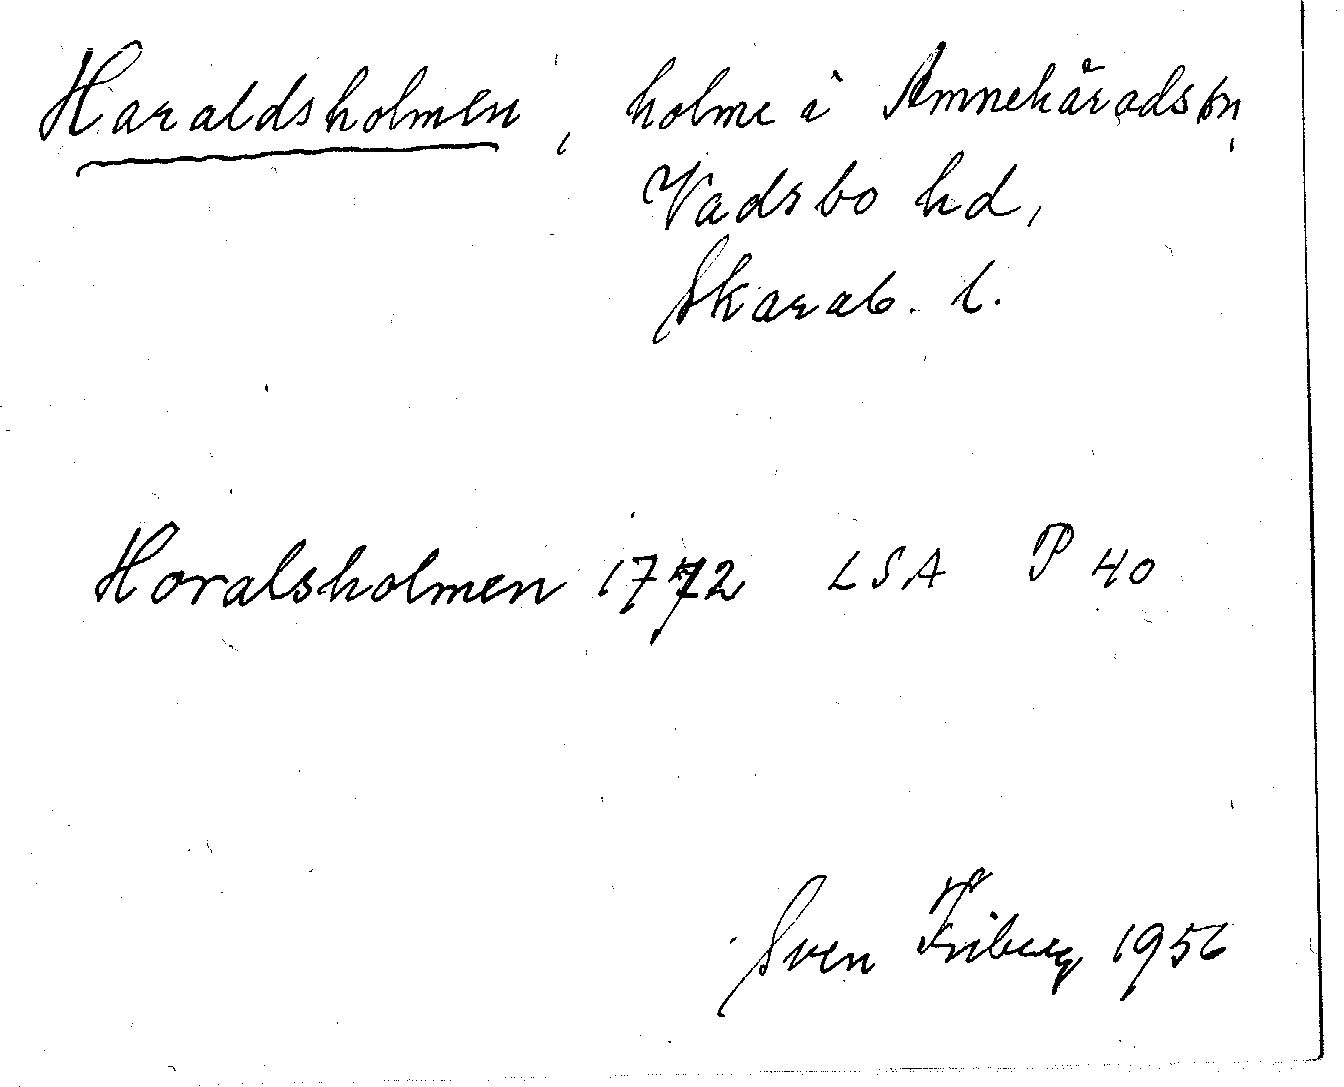 Haraldsholmen, holme i Amnehärads sn,
Vadsbo hd,
Skarab. l.
Horalsholmen 1772 LSA P 40
Sven Friberg 1956